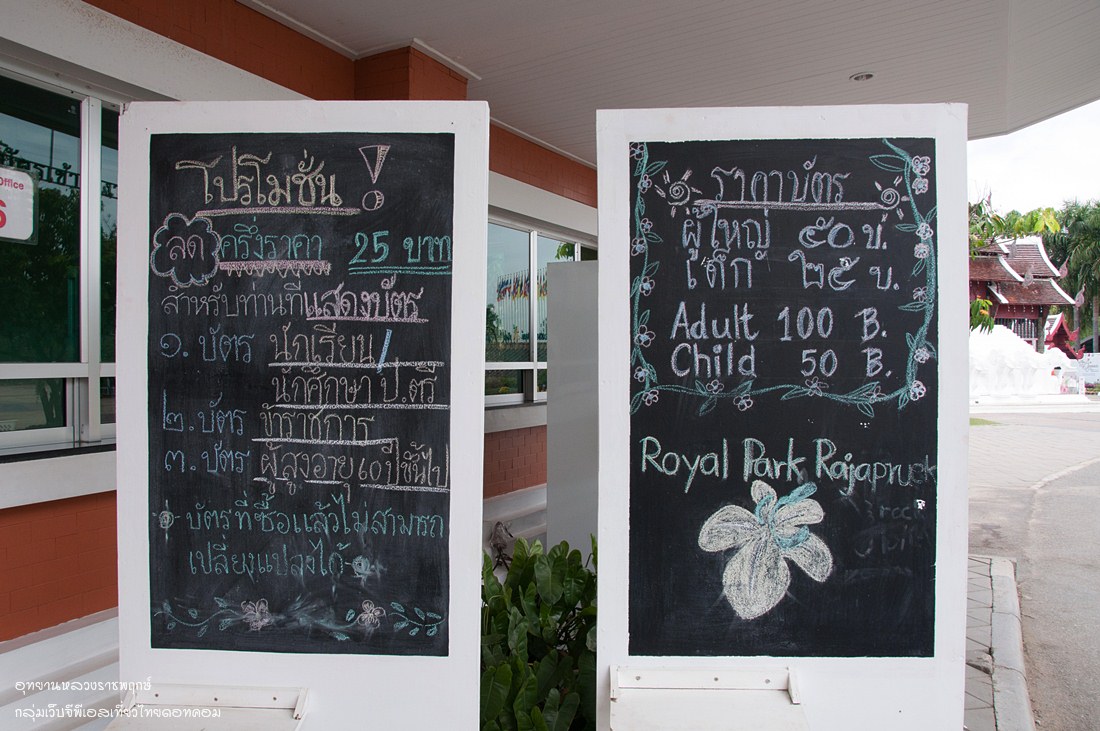 โปรโมชั่น !
ลด ครึ่งราคา 25 บาท
สำหรับท่านที่แสดงบัตร
๑. บัตร นักเรียน/
นักศึกษา ป.ตรี
๒. บัตร ข้าราชการ
๓. บัตร ผู้สูงอายุ ๖๐ ปีขึ้นไป
บัตรที่ซื้อแล้วไม่สามารถ
เปลี่ยงแปลงได้
ราคาบัตร
ผู้ใหญ่ ๕๐ บ.
เด็ก ๒๕ บ.
Adult 100 B.
Child 50 B.
Royal Park Rajapruek
Office
อุทยานหลวงราชพฤกษ์
กลุ่มเว็บจีพีเอสเที่ยวไทยดอทคอม